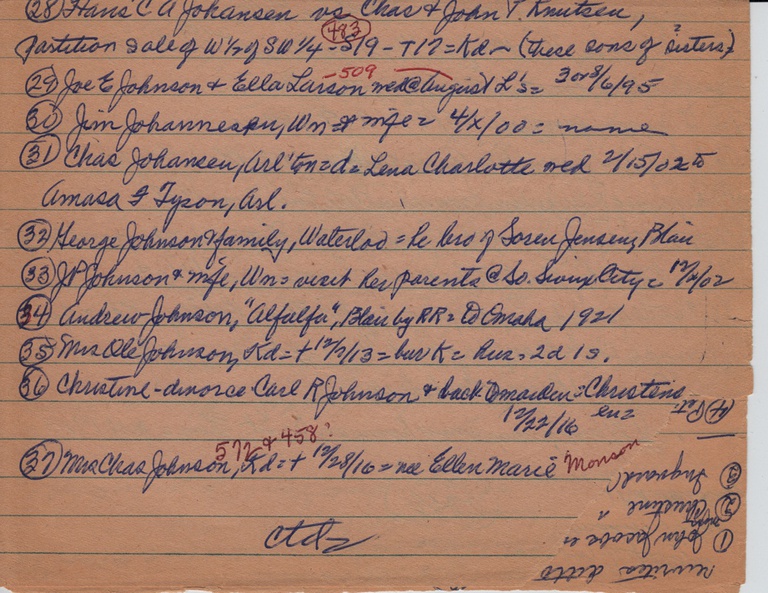 (28) Hans C A Johansen vs Chas & John P. Knutsen,
483
partition sale of W½ of SW¼ - S19 - T17 = Kd ~ (these sons of sisters?)
(29) Joe E Johnson & Ella Larson wed @ August L's = 3 or 8/6/95
-509
(30) Jim Johannesen, Wn = & wife = 4/x/00 = name
(31) Chas Johansen, Arl'ton = d = Lena Charlotte wed 2/15/02 to
Amasa F Tyson, Arl.
(32) George Johnson & family, Waterloo = he bro of Soren Jensen, Blair
(33) JP Johnson & wife, Wn = visit her parents @ So. Sioux City = 12/x/02
(34) Andrew Johnson, "Alfalfa", Blair by RR = to Omaha 1921
(35) Mrs Ole Johnson, Kd = + 12/2/13 = bur K = hus = 2d 1s.
(36) Christine - divorce Carl R Johnson & back to maiden = Christens
12/22/16 en =
572 & 458?
(37) Mrs Chas Johnson, Kd = + 12/28/16 = nee Ellen Marie Monson
ctd
rewritten ditto
(1) John Jacobs
(2) Christine
(3)
(4)